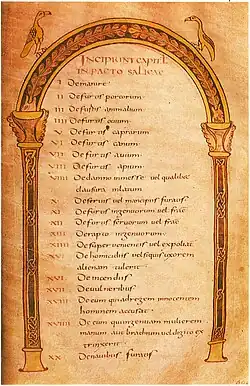 INCIPIUNT CAPITL
IN PACTO SALICAE
I De manire
II De furtis porcorum
III De furtis animalium
IIII De furtis ovium
V De furtis caprarum
VI De furtis canum
VII De furtis avium
VIII De furtis apium
VIIII De damno in messe vel qualibec
clausura inlatum
De servis vel mancipiis furatis
XI De furtis ingenuorum vel frac
XII De furtis servorum vel frac
XIII De rapto ingenuorum
XIIII De superventis vel expoliac
XV De homicidiis vel si quis uxorem
alienam tulerit
XVI De incendiis
XVII De vulneribus
XVIII De eum qui ad regem innocentem
hominem accusat
XVIIII De eum qui ingenuam mulierem
manum aut brachium vel digito ex
trinxerit
XX De navibus furatis